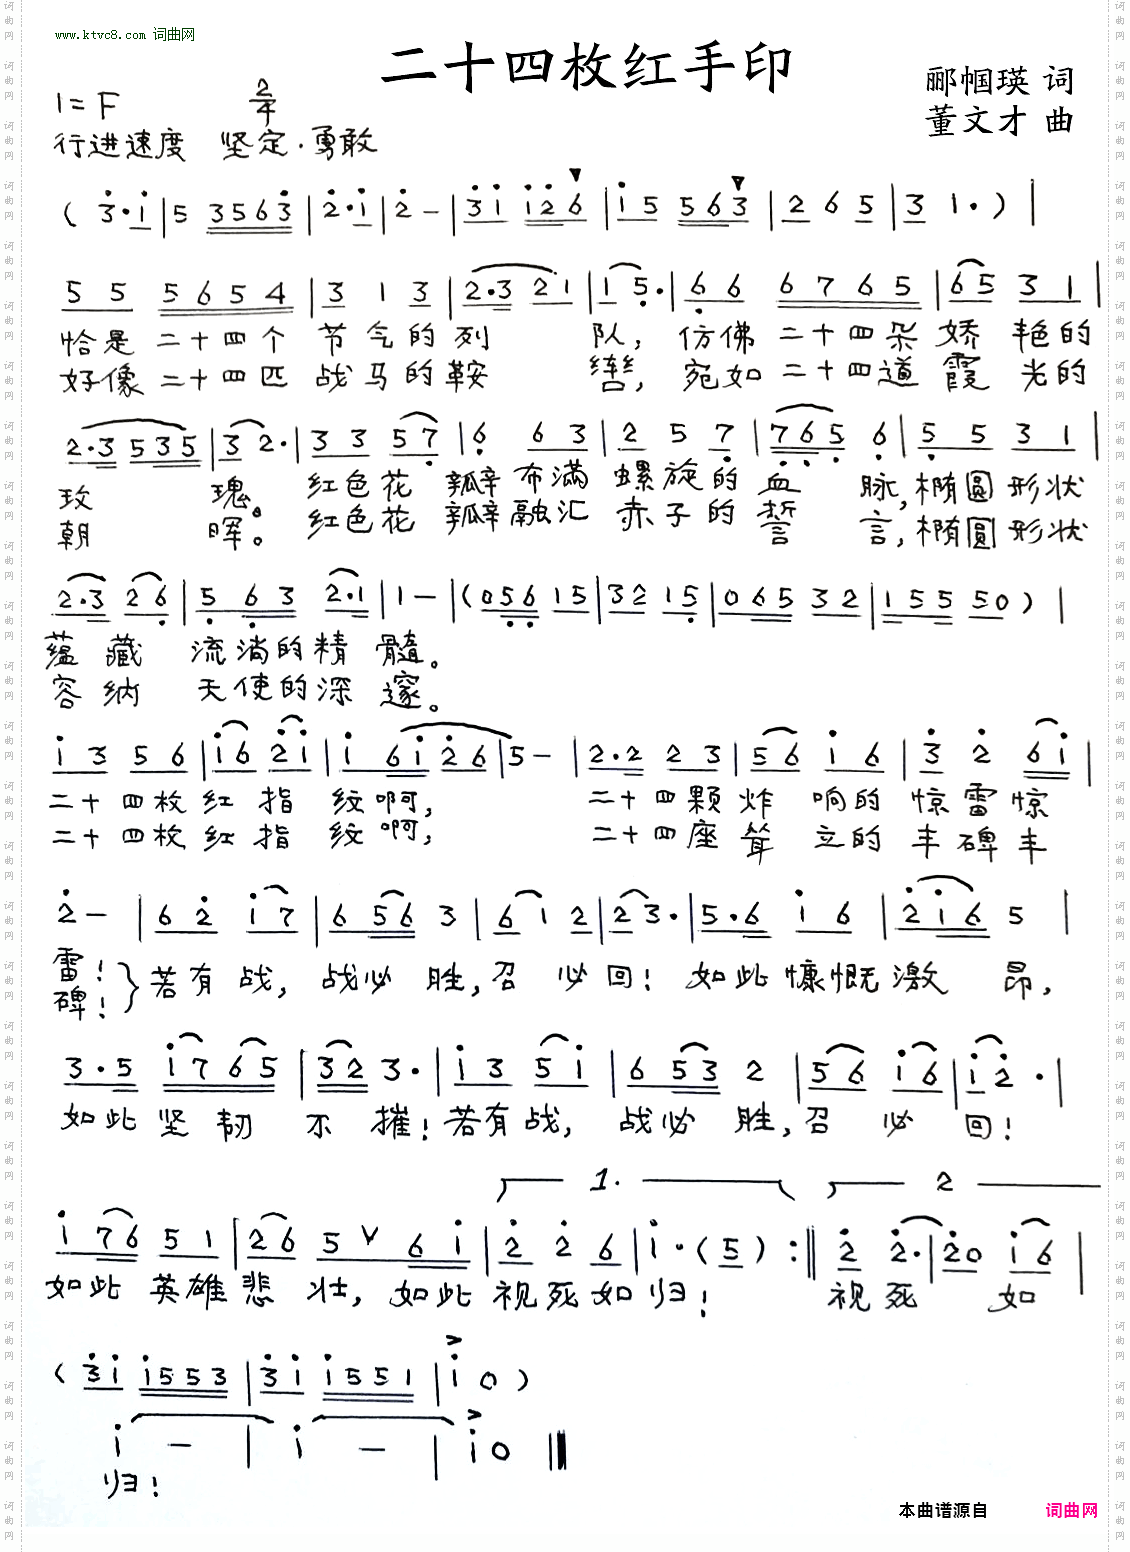 www.ktvc8.com 词曲网
二十四枚红手印
郦帼瑛 词
董文才 曲
1=F 2/4
行进速度 坚定·勇敢
(3̇·i̇|5 3563̇|2̇·i̇|2̇-|3̇i̇ i̇2̇6|i̇5 563|2 65|3 1·)|
55 5654|3 1 3|2·3 21|15̣·|6̣6 6765|65 31|
恰是二十四个节气的列队,仿佛二十四朵娇艳的
好像二十四匹战马的鞍辔,宛如二十四道霞光的
2·3 535|32·|33 57̣|6̣ 63|2 5 7̣|7̣6̣5̣ 6̣|5̣5 31|
玫瑰。红色花瓣布满螺旋的血脉,椭圆形状
朝晖。红色花瓣融汇赤子的誓言,椭圆形状
2·3 26̣|5̣ 6̣3 2·1|1-|(05̣6̣ 15|32 15̣|065 32|155 50)|
蕴藏流淌的精髓。
容纳天使的深邃。
i̇3 56|i̇6 2̇i̇|i̇ 6i̇2̇6|5-|2·2 23|56 i̇6|3̇ 2̇ 6i̇|
二十四枚红指纹啊,二十四颗炸响的惊雷惊
二十四枚红指纹啊,二十四座耸立的丰碑丰
2̇-|62̇ i̇7|656 3|61 2|23·|5·6 i̇6|2̇i̇6 5|
雷!
碑!
若有战,战必胜,召必回!如此慷慨激昂,
3·5 i̇765|323·|i̇3 5i̇|653 2|56 i̇6|i̇2̇·|
如此坚韧不摧!若有战,战必胜,召必回!
1. 2
i̇76 51|26 5 V 6i̇|2̇ 2̇ 6|i̇·(5):‖2̇ 2̇·|2̇0 i̇6|
如此英雄悲壮,如此视死如归!视死如
(3̇i̇ i̇553|3̇i̇ i̇551|i̇ 0)
i̇ -|i̇ -|i̇0‖
归!
本曲谱源自 词曲网